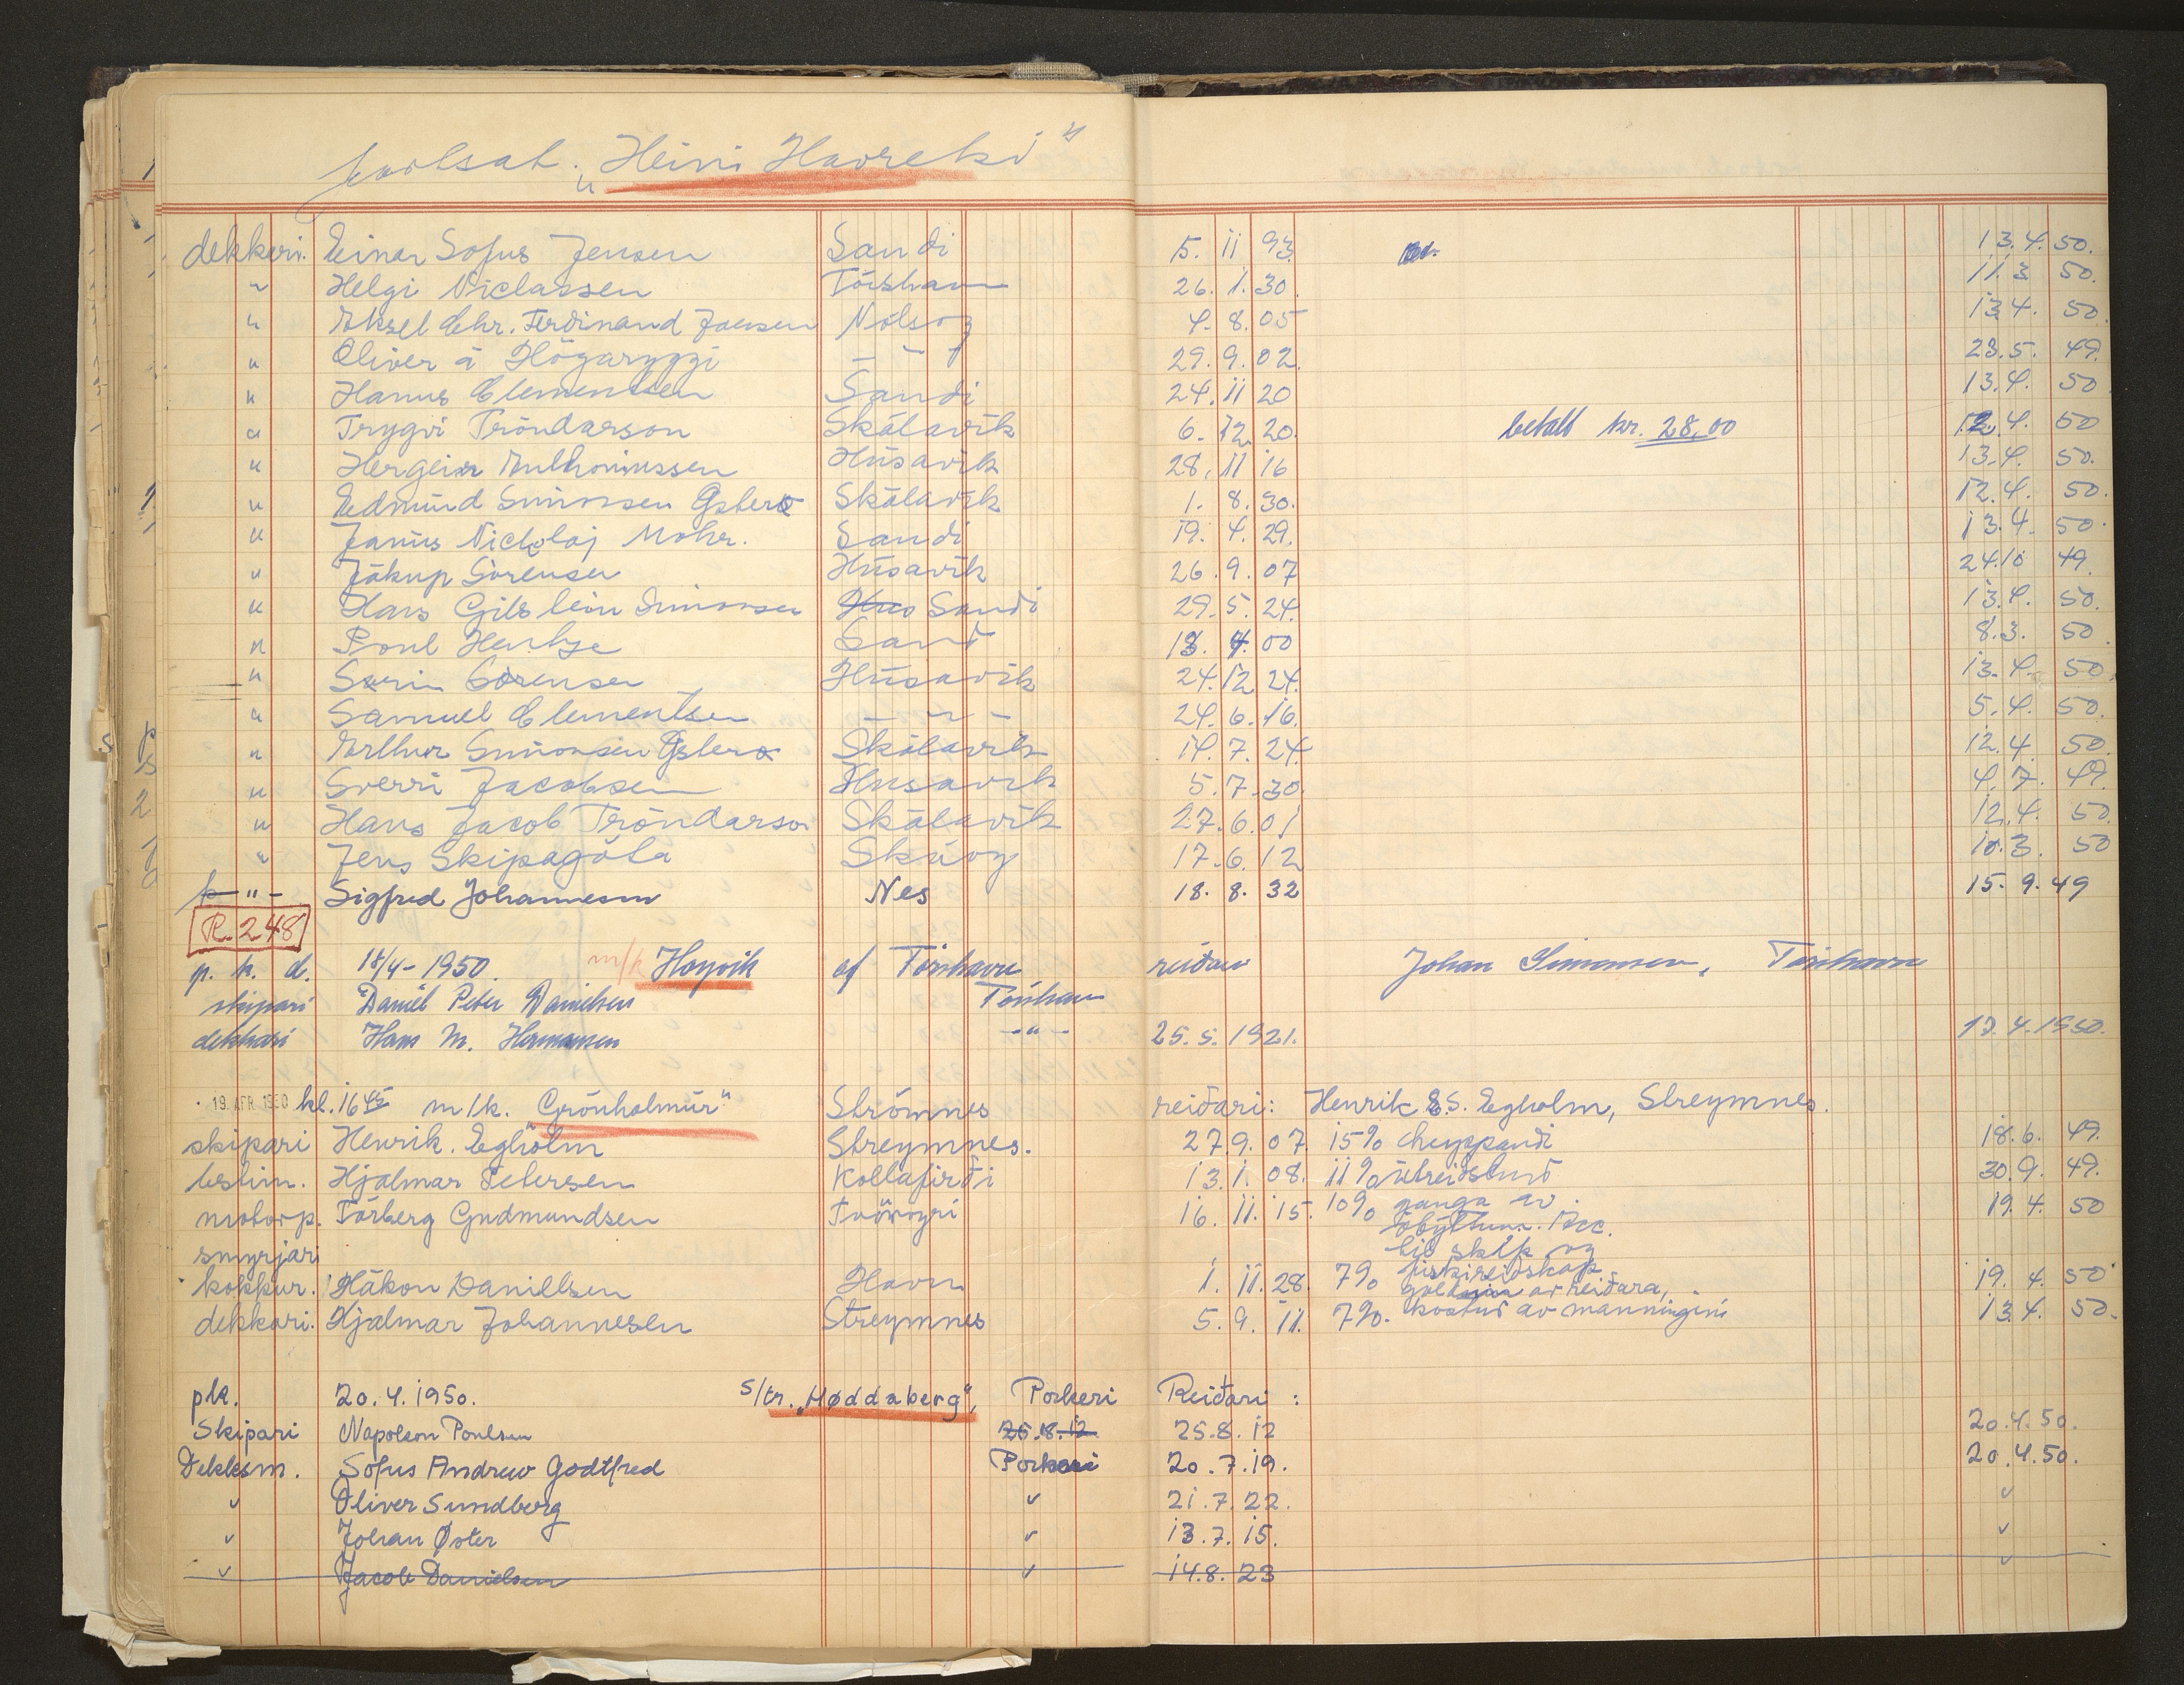 fortsat. „Heini Havreki"
dekkari. Einar Sofus Jensen Sandi 15. 11 93. 13.4.50.
" Helgi Niclassen Tórshavn 26. 1. 30. 11.3 50.
" Aksel Chr. Ferdinand Joensen Nólsoy 4. 8. 05 13.4. 50.
" Oliver á Høgaryggi - " - 29. 9. 02. 23.5. 49.
" Hanus Clementsen Sandi 24. 11 20 13.4. 50
" Trygvi Tróndarson Skálavík 6. 12. 20. betalt kr. 28,00 12.4. 50
" Hergeir Anthoniussen Húsavík 28. 11 16 13.4. 50.
" Edmund Simonsen Ysterø Skálavík 1. 8. 30. 12.4. 50.
" Janus Nickolaj Mohr. Sandi 19. 4. 29. 13.4. 50.
" Jákup Sörensen Húsavík 26. 9. 07 24.10 49.
" Hans Gilsteön Simonsen Hus Sandi 29. 5. 24. 13.4. 50.
" Poul Hentze Sand 13. 4. 00 8.3. 50.
" Sørin Sörensen Húsavík 24. 12 24. 13.4. 50.
" Samuel Clementsen - " - 24. 6. 16. 5.4. 50.
" Arthur Simonsen Ysterø Skálavík 14. 7. 24. 12.4. 50.
" Sverri Jacobsen Húsavík 5. 7. 30. 4.7. 49.
" Hans Jacob Tróndarson Skálavík 27. 6. 01 12.4. 50.
" Jens Skipagöta Skúvoy 17. 6. 12 10.3. 50
- " - Sigfred Johannesen Nes 18. 8. 32 15. 9. 49
R. 248
p. k. d. 18/4-1950. m/k Hoyvik af Tórshavn reiðari Johan Simonsen, Tórshavn
skipari Daniel Peter Danielsen Tórshavn
dekkari Hans M. Hermansen - " - 25. 5. 1921. 13.4.1950.
19. APR 1950 kl. 16 45 m/k. Grönholmur" Strömnes reiðari: Henrik E.S. Egholm, Streymnes.
skipari Henrik. Egholm Streymnes. 27. 9. 07. 15% 18.6. 49.
bestm. Hjalmar Petersen Kollafirði 13. 1. 08. 11% 30.9. 49.
motorp. Tórberg Gudmundsen Tvöroyri 16. 11. 15. 10% ganga av 19.4. 50
smyrjari til skip og
kokkur. Hákon Daniellsen Havn 1. 11. 28. 7% fiskireiðskap av reiðara, 19. 4. 50
dekkari. Hjalmar Johannesen Streymnes 5. 9. 11. 7%. kostur av manningini 13.4. 50.
pk. 20.4.1950. s/tr. „Høddaberg", Porkeri Reiðari :
Skipari Napoleon Poulsen 25.8.12 25.8.12 20.4.50.
Dekksm. Sofus Andrew Godtfred Porkeri 20.7.19. 20.4.50.
" Oliver Sundberg " 21.7.22. "
" Johan Øster " 13.7.15. "
" Jacob Danielsen " 14.8.23 "